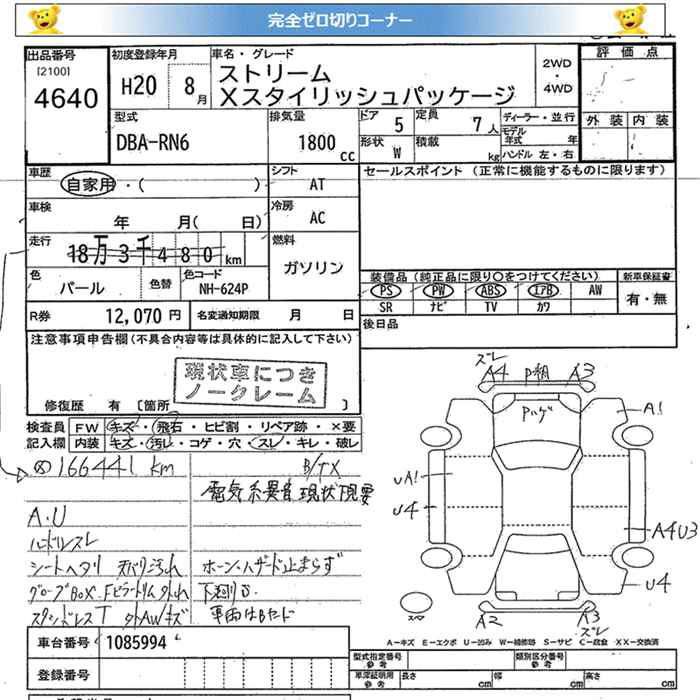 完全ゼロ切りコーナー
出品番号
[2100]
4640
初度登録年月
H20 8月
車名・グレード
ストリーム
Xスタイリッシュパッケージ
2WD
・
4WD
評価点
外装 内装
型式
DBA-RN6
排気量
1800 cc
ドア 5
定員 7人
形状 W
積載 kg
ディーラー・並行
モデル年式 年
ハンドル 左・右
車歴
自家用・( )
シフト
AT
セールスポイント (正常に機能するものに限ります)
車検
年 月( 日)
冷房
AC
走行
18万3千480 km
燃料
ガソリン
色
パール
色替
色コード
NH-624P
装備品 (純正品に限り○をつけてください)
PS PW ABS エアB AW
SR ナビ TV カワ
新車保証書
有・無
R券 12,070 円
名変通知期限 月 日
後日品
注意事項申告欄(不具合内容等は具体的に記入して下さい)
現状車につき
ノークレーム
修復歴 有 [箇所 ]
検査員
記入欄
FW キズ・飛石・ヒビ割・リペア跡・×要
内装 キズ・汚レ・コゲ・穴・スレ・キレ・破レ
166441 km
B/TX
電気系異音現状下見要
A.U
ハンドルスレ
シートヘタリ 天バリ汚れ
ホーン・ハザード止まらず
グローブBOX・Fピラートリム外れ
T 外AWキズ
ズレ
A4 P割 A3
Pハゲ
A1
UA1
U4
A4U3
U4
スペア
A2
A3
ズレ
A-キズ E-エクボ U-凹み W-補修跡 S-サビ C-腐食 XX-交換済
車台番号 1085994
登録番号
型式指定番号
参考
類別区分番号
参考
車庫証明用
参考
長さ cm
幅 cm
高さ cm